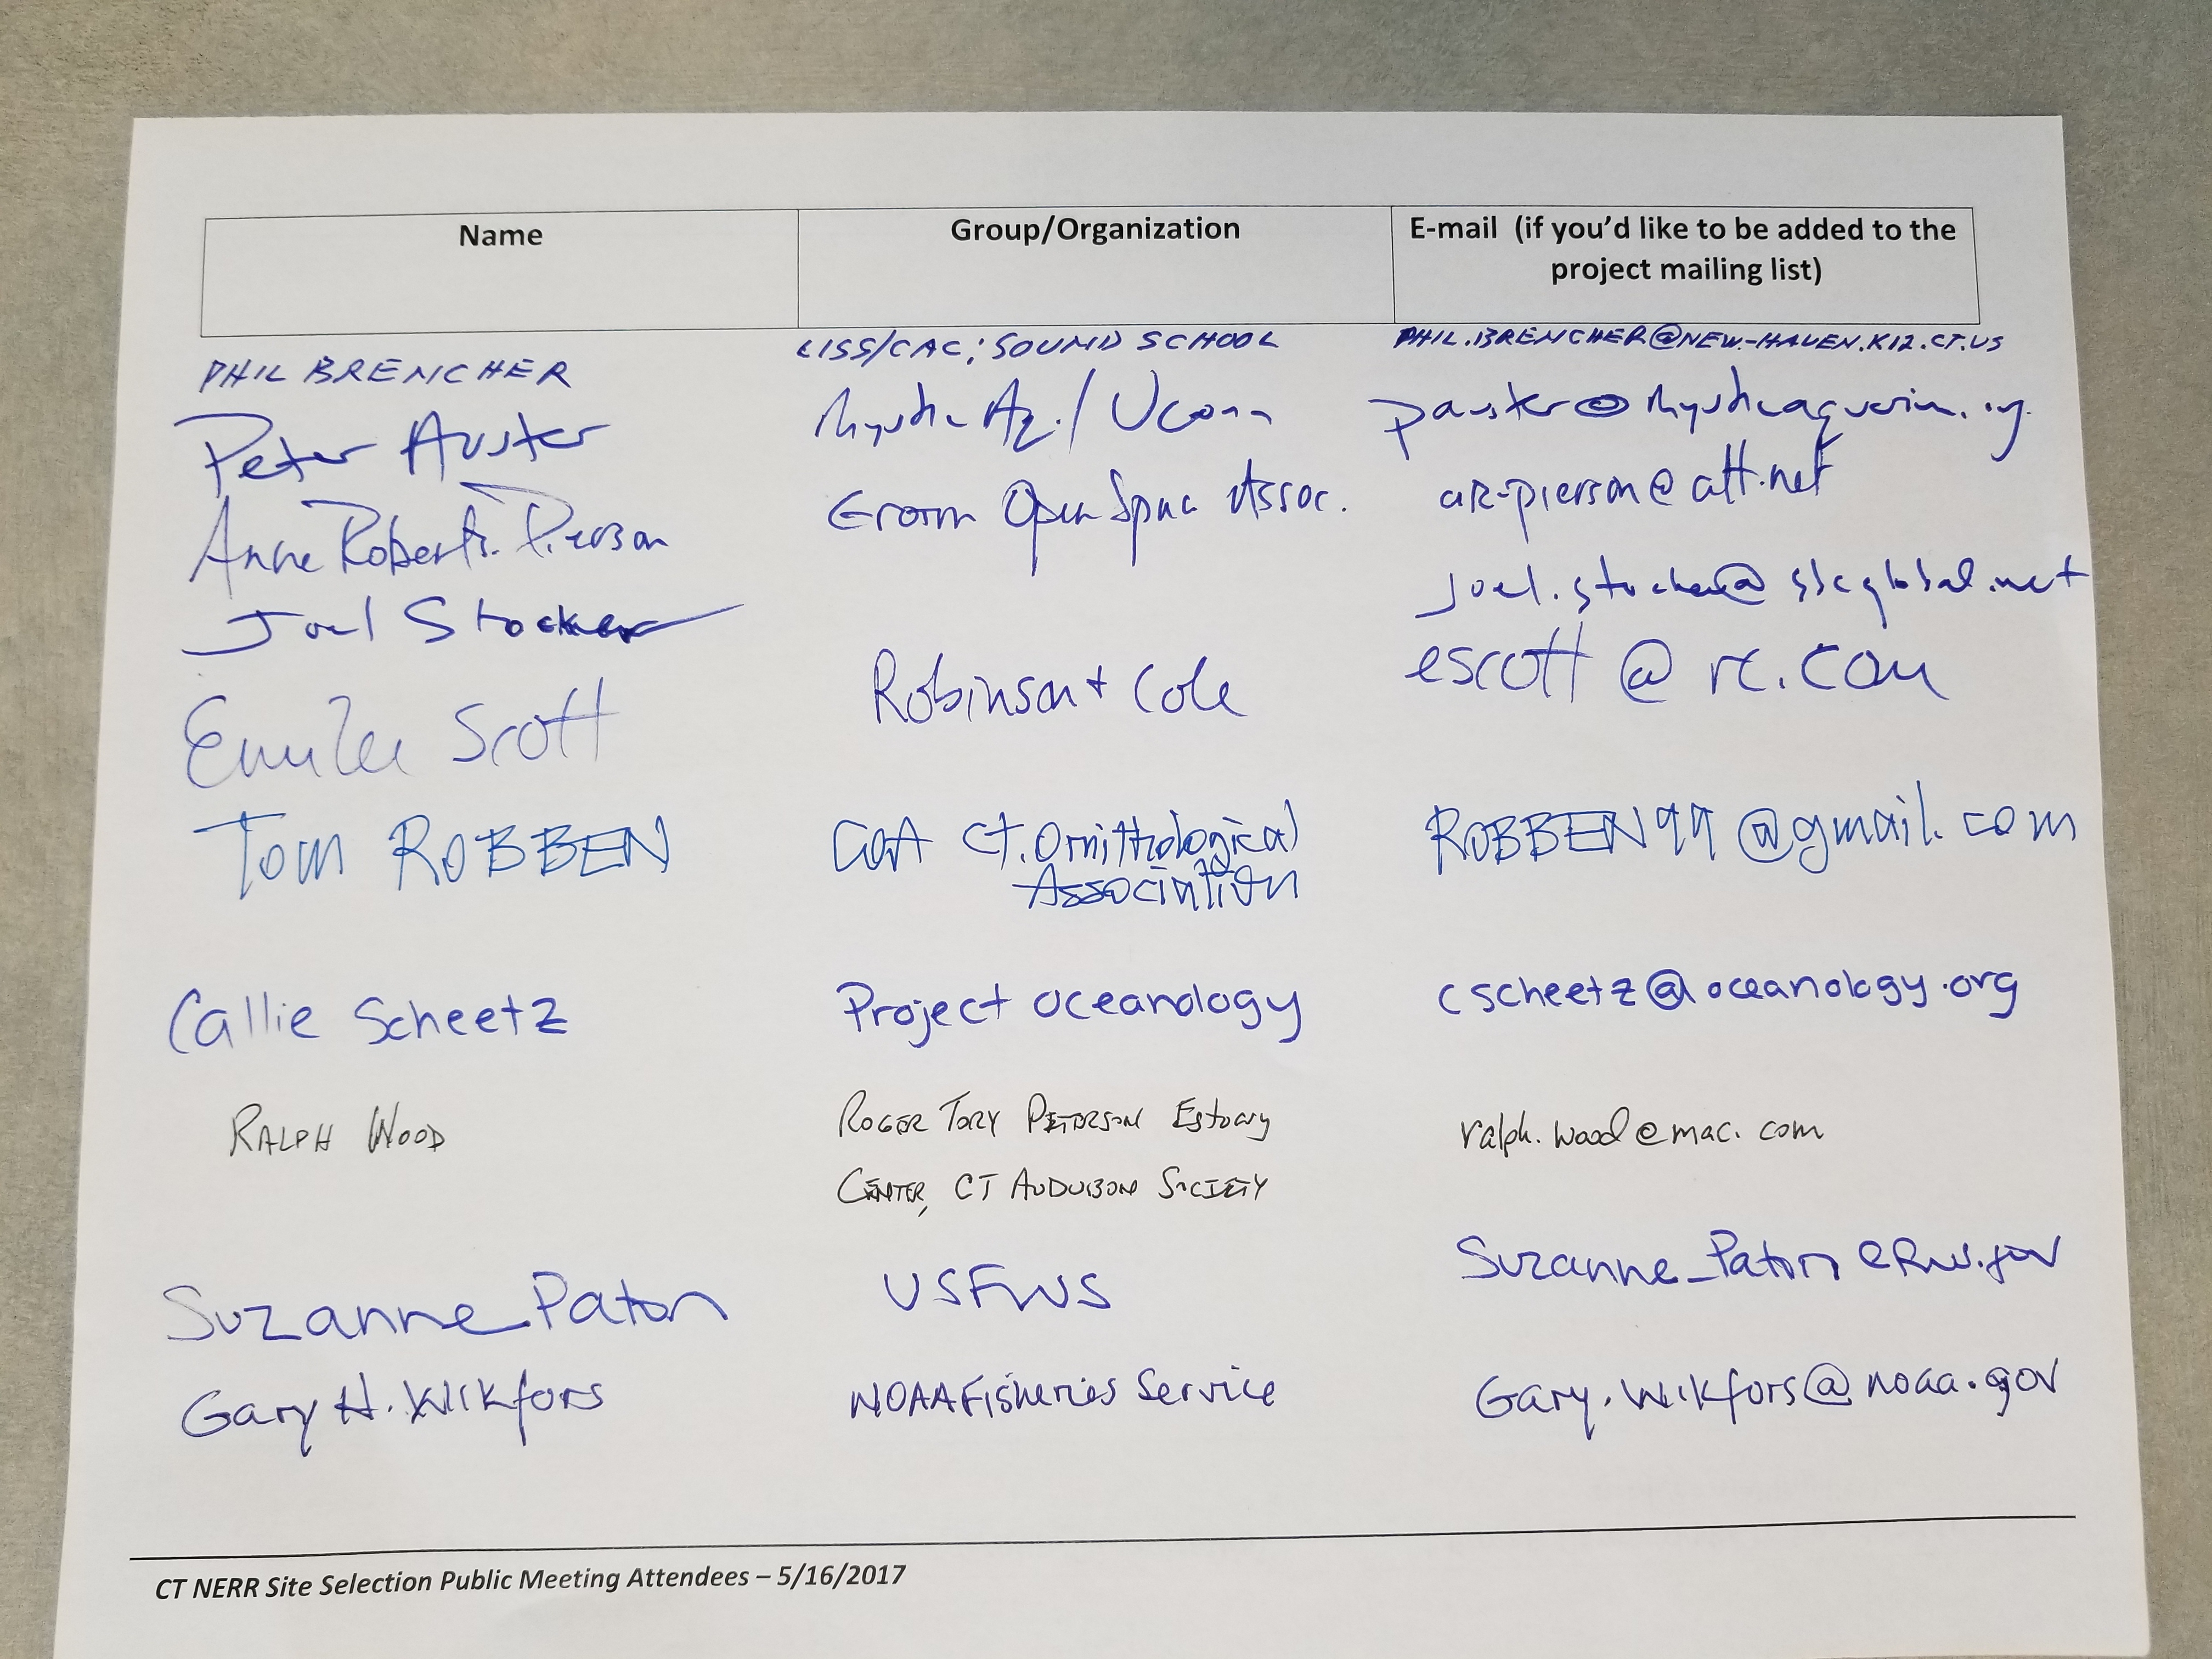 Name Group/Organization E-mail (if you'd like to be added to the
project mailing list)
PHIL BRENCHER LISS/CAC; SOUND SCHOOL PHIL.BRENCHER@NEW-HAVEN.K12.CT.US
Peter Auster Mystic Aq./UConn pauster@mysticaquarium.org
Anne Roberts-Pierson Groton Open Space Assoc. ar-pierson@att.net
Joel Stocker joel.stocker@sbcglobal.net
Emilee Scott Robinson + Cole escott@rc.com
Tom ROBBEN COA CT. Ornithological ROBBEN99@gmail.com
Association
Callie Scheetz Project Oceanology cscheetz@oceanology.org
RALPH WOOD ROGER TORY PETERSON Estuary ralph.wood@mac.com
CENTER, CT AUDUBON SOCIETY
Suzanne Paton USFWS Suzanne_Paton@fws.gov
Gary H. Wikfors NOAA Fisheries Service Gary.Wikfors@noaa.gov
CT NERR Site Selection Public Meeting Attendees – 5/16/2017